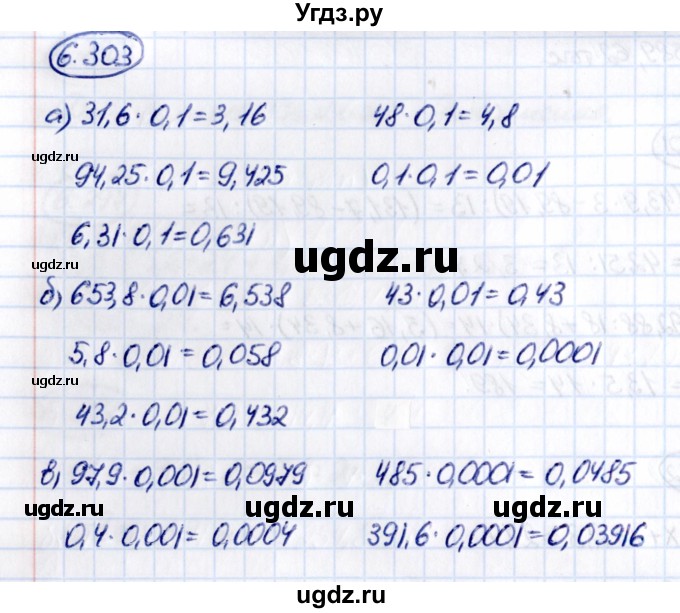 Угдз.ру
6.303
а) 31,6 · 0,1 = 3,16 48 · 0,1 = 4,8
угдз.ru
94,25 · 0,1 = 9,425 0,1 · 0,1 = 0,01
6,31 · 0,1 = 0,631
угдз.ru
угдз.ru
б) 653,8 · 0,01 = 6,538 43 · 0,01 = 0,43
5,8 · 0,01 = 0,058 0,01 · 0,01 = 0,0001
угдз.ru
43,2 · 0,01 = 0,432
в) 97,9 · 0,001 = 0,0979 485 · 0,0001 = 0,0485
угдз.ru
угдз.ru
0,4 · 0,001 = 0,0004 391,6 · 0,0001 = 0,03916
угдз.ru